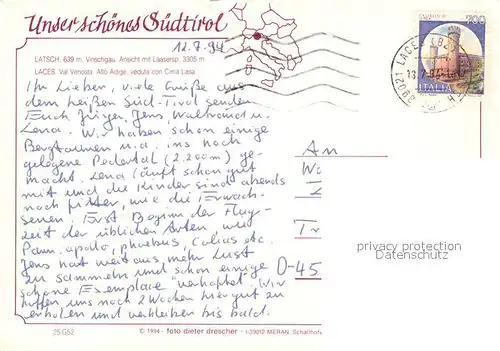 Unser schönes Südtirol
12.7.94
LATSCH, 639 m, Vinschgau. Ansicht mit Laasersp. 3305 m
LACES. Val Venosta. Alto Adige, veduta con Cima Lasa
700
ITALIA
39021 LACES (BZ)
Ihr Lieben, viele Grüße aus
dem heißen Süd-Tirol senden
Euch Jürgen, Jens, Waltraud u.
Lena. Wir haben schon einige
Bergtouren u.a. ins hoch
gelegene Pedertal (2.200 m) ge-
macht. Lena läuft schon gut
mit und die Kinder sind abends
noch fitter, wie die Erwach-
senen. Erst Beginn der Flug-
zeit der üblichen Arten wie
Parn. apollo, phoebus, Colias etc.
Jens hat weitaus mehr Lust
zu sammeln und schon einige
schöne Exemplare "verhaftet". Wir
hoffen uns noch 2 Wochen hier gut zu
erholen und verbleiben bis bald.
An
D-45
privacy protection
Datenschutz
25 G52
© 1994 - foto dieter drescher - I-39012 MERAN, Schafferstr